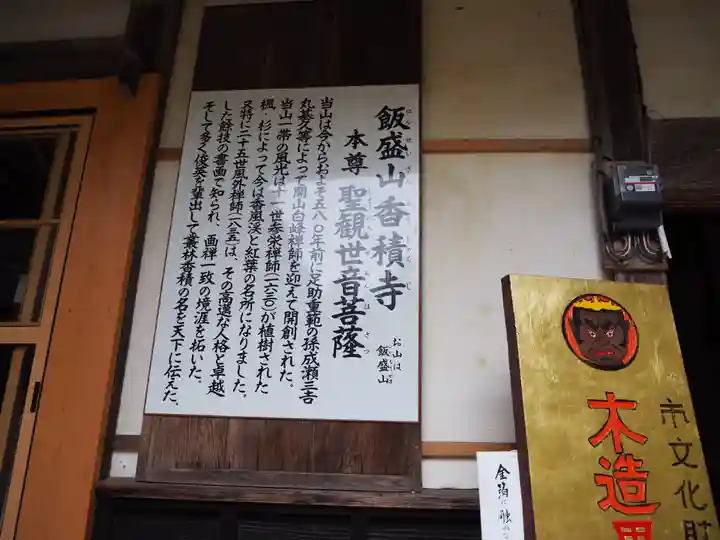 飯盛山香積寺
はんせいざんこうじゃくじ
本尊 聖観世音菩薩
お山は
飯盛山
当山は今からおよそ五八〇年前に足助重範の孫成瀬三吉
丸基久等によって開山白峰禅師を迎えて開創された。
当山一帯の風光は十一世参栄禅師(一六三〇)が植樹された
楓・杉によって今は香嵐渓と紅葉の名所になりました。
又特に二十五世風外禅師(一八三五)は、その高邁な人格と卓越
した餘技の書画で知られ、画禅一致の境涯を拓いた。
そして多く俊英を輩出して叢林香積の名を天下に伝えた。
市文化財
木造
金箔に